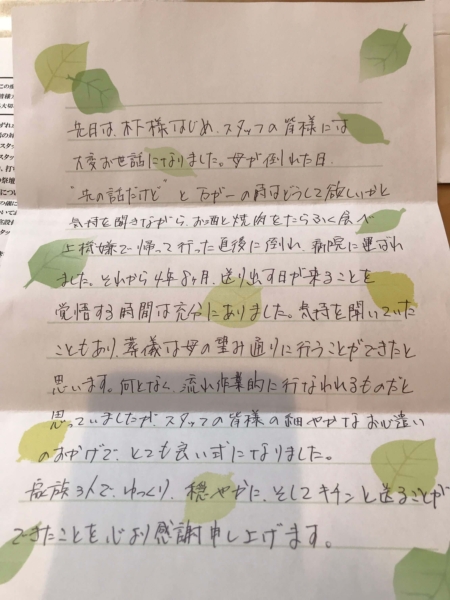 先日は、木下様はじめ、スタッフの皆様には
大変お世話になりました。母が倒れた日、
"先の話だけど"と万が一の時はどうして欲しいかと
気持を聞きながら、お酒と焼肉をたらふく食べ
上機嫌で帰って行った直後に倒れ、病院に運ばれ
ました。それから4年8ヶ月、送り出す日が来ることを
覚悟する時間は充分にありました。気持を聞いていた
こともあり、葬儀は母の望み通りに行うことができたと
思います。何となく、流れ作業的に行なわれるものだと
思っていましたが、スタッフの皆様の細やかなお心遣い
のおかげで、とても良い式になりました。
家族3人で、ゆっくり、穏やかに、そしてキチンと送ることが
できたことを心より感謝申し上げます。